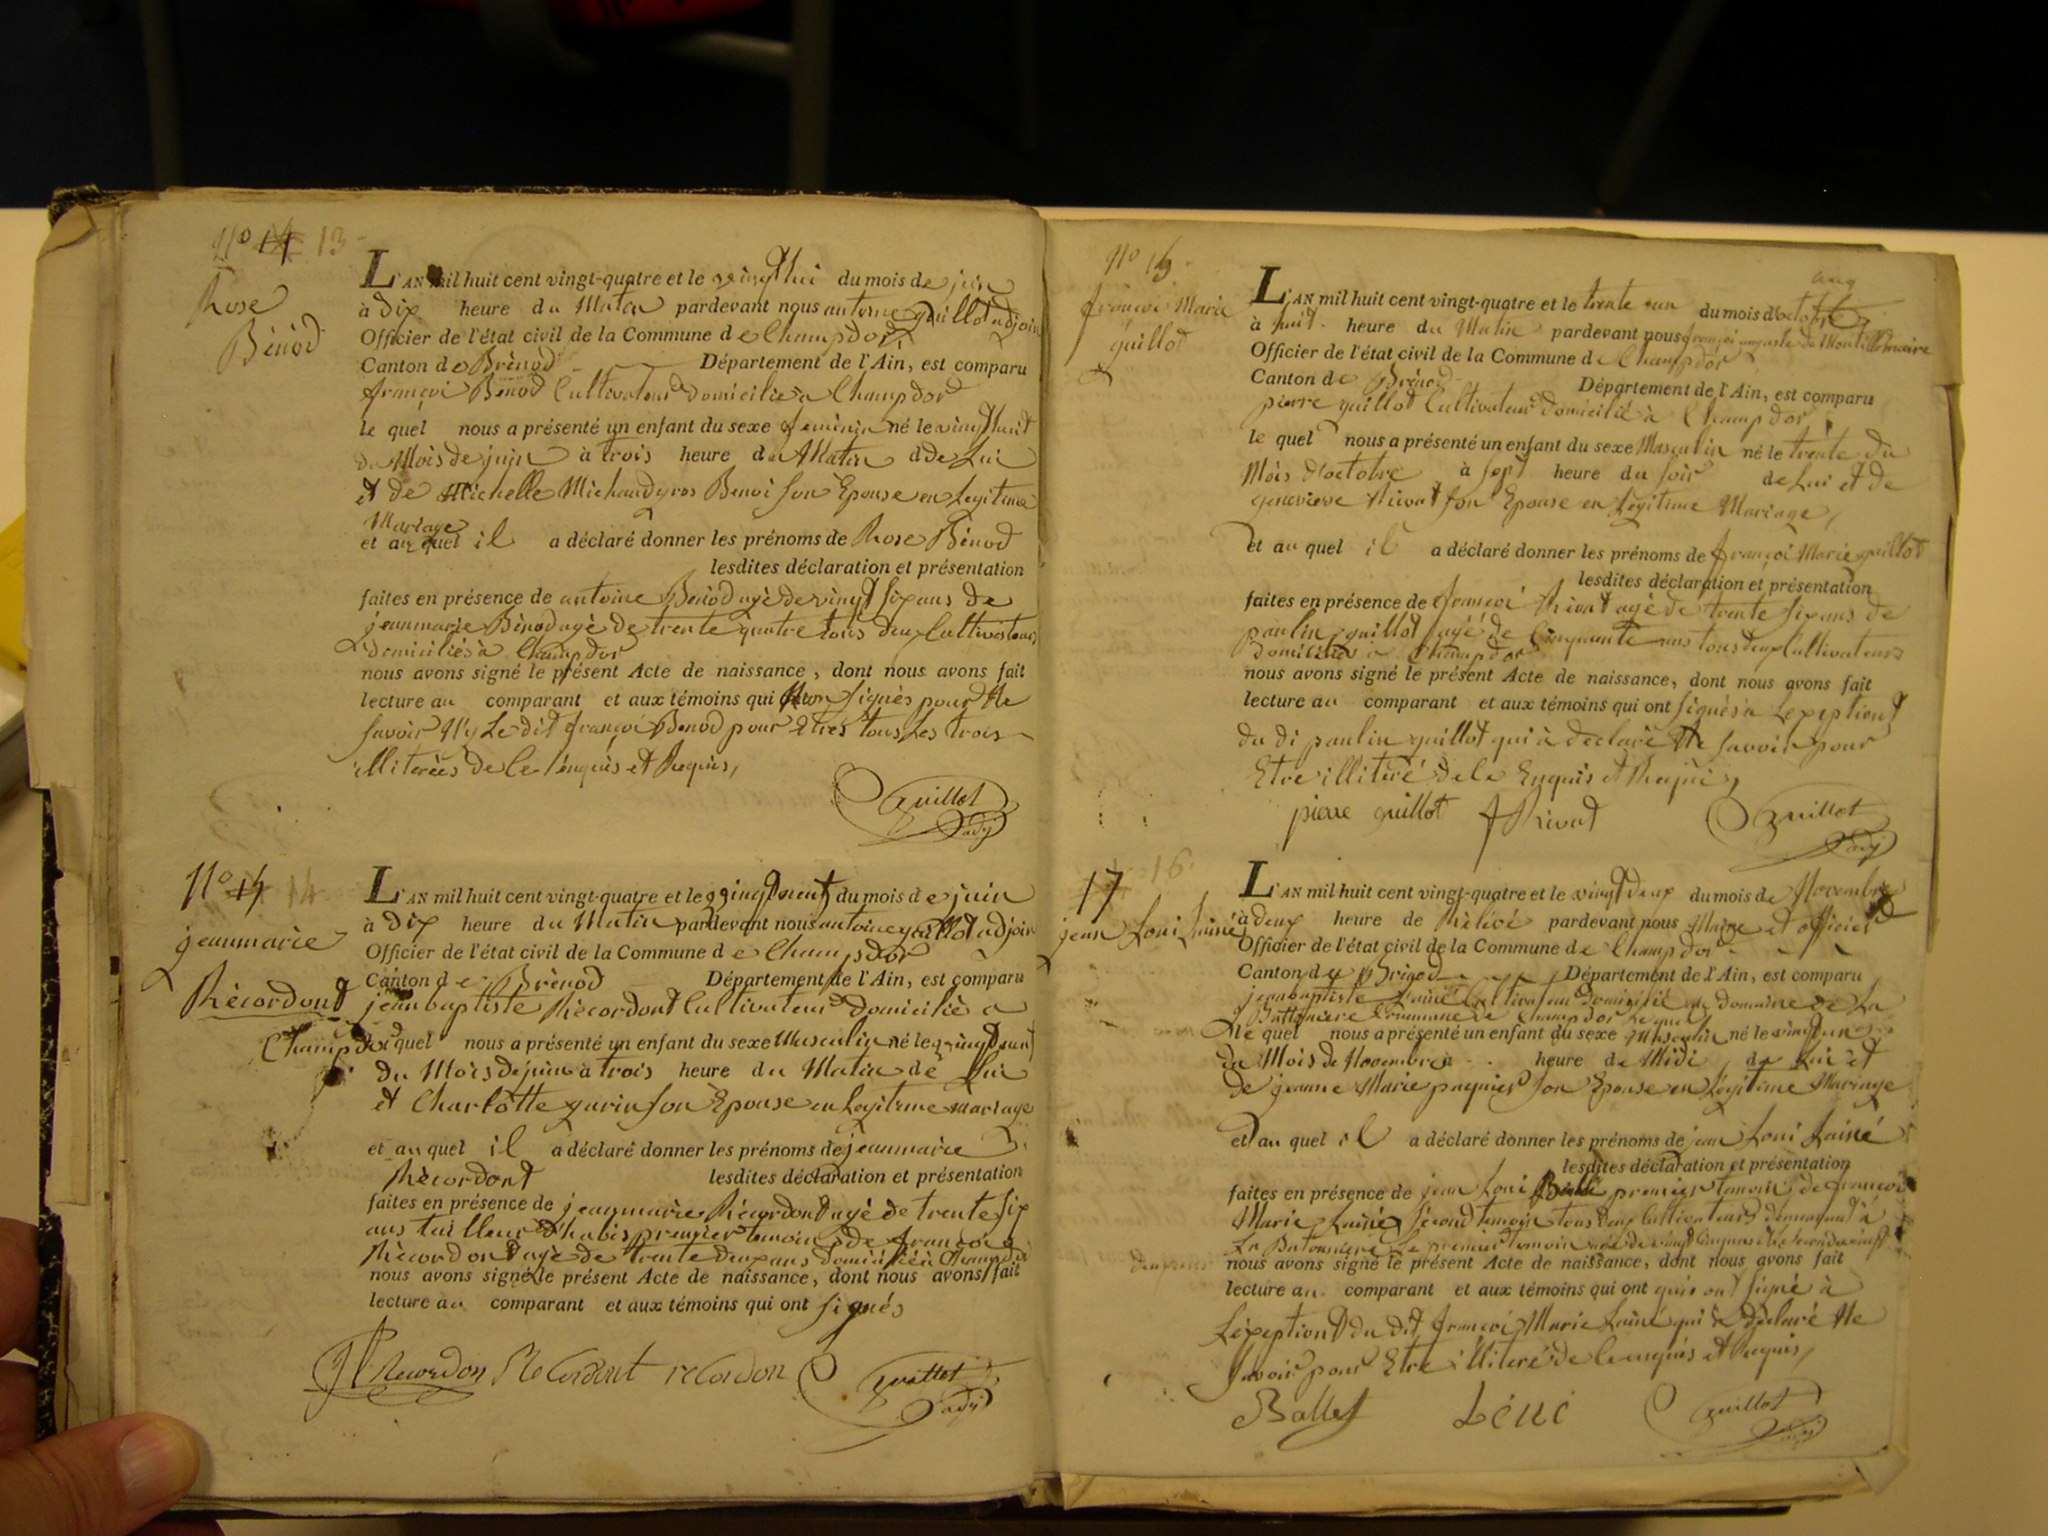 No 14 13
Rose
Bénod
L'AN mil huit cent vingt-quatre et le vingt hui du mois de juin
à dix heure du Matin pardevant nous antoine guillot adjoin
Officier de l'état civil de la Commune de Champdor
Canton de Brénod Département de l'Ain, est comparu
françoi Bénod Cultivateur domicilié a Champdor
le quel nous a présenté un enfant du sexe feminin né le vingt huit
du Mois de juin à trois heure du Matin de Lui
et de Michelle Michaud gros Benoi son Epouse en Legitime
Mariage
et au quel il a déclaré donner les prénoms de Rose Bénod
lesdites déclaration et présentation
faites en présence de antoine Bénod agé de vingt six ans de
jeanmarie Bénod agé de trente quatre tous deux Cultivateurs
domiciliés à Champdor
nous avons signé le présent Acte de naissance, dont nous avons fait
lecture au comparant et aux témoins qui signés pour Ne
savoir Ny Le dit françoi Benod pour Etres tous Les trois
illiterées de ce enquis et Requis,
Guillot
adj
No 15 14
jeanmarie
Récordont
L'AN mil huit cent vingt-quatre et le vingt neuf du mois de juin
à dix heure du Matin pardevant nous antoine guillot adjoin
Officier de l'état civil de la Commune de Champdor
Canton de Brénod Département de l'Ain, est comparu
jeanbaptiste Récordont Cultivateur domicilié a
Champdor quel nous a présenté un enfant du sexe Masculin né le vingt neuf
du Mois de juin à trois heure du Matin de Lui
et Charlotte gurin son Epouse en Legitime mariage
et au quel il a déclaré donner les prénoms de jeanmarie
Récordont lesdites déclaration et présentation
faites en présence de jeanmarie Récordont agé de trente six
ans tailleur d'habis premier temoin de françoi
Récordont agé de trente deux ans domicilié à Champdor
nous avons signé le présent Acte de naissance, dont nous avons fait
lecture au comparant et aux témoins qui ont signés
Recordon Recordont recordon Guillot
adj
No 15
françoi Marie
guillot
L'AN mil huit cent vingt-quatre et le trente eun du mois d'octobre
à huit heure du Matin pardevant nous françoi auguste de Montillet maire
Officier de l'état civil de la Commune de Champdor
Canton de Brénod Département de l'Ain, est comparu
pierre guillot Cultivateur domicilié à Champdor
le quel nous a présenté un enfant du sexe Masculin né le trente du
Mois d'octobre à sept heure du soir de Lui et de
genevieve Rivat son Epouse en Legitime Mariage,
et au quel il a déclaré donner les prénoms de françoi Marie guillot
lesdites déclaration et présentation
faites en présence de françoi Rivat agé de trente six ans de
paulin guillot agé de Cinquante ans tous deux Cultivateurs
Domiciliés a Champdor
nous avons signé le présent Acte de naissance, dont nous avons fait
lecture au comparant et aux témoins qui ont signés a Lexeption
du di paulin guillot qui à declaré Ne savoir pour
Etre illitéré de ce Enquis et Requis,
pierre guillot f Rivat Guillot
adj
17 16
jean Loui Lainé
L'AN mil huit cent vingt-quatre et le vingt deux du mois de Novembre
à deux heure de Relevé pardevant nous Maire et officier
Officier de l'état civil de la Commune de Champdor
Canton de Brénod Département de l'Ain, est comparu
jeanbaptiste Lainé Cultivateur domicilié au domaine de La
Commune de Champdor Lequel
le quel nous a présenté un enfant du sexe Masculin né le vingt un
du Mois de Novembre à heure de Midi de Lui et
de jeanne Marie paquier son Epouse en Legitime Mariage
et au quel il a déclaré donner les prénoms de jean Loui Lainé
lesdites déclaration et présentation
faites en présence de jean Loui premier temoin de françoi
Marie Lainé second temoin tous deux Cultivateurs demeurant à
Le premier temoin agé de vingt Cinq ans
nous avons signé le présent Acte de naissance, dont nous avons fait
lecture au comparant et aux témoins qui ont quis ont signé à
Léxeption du dit françoi Marie Lainé qui à déclaré Ne
savoir pour Etre illiteré de ce enquis et Requis,
Ballet Léné Guillot
adj